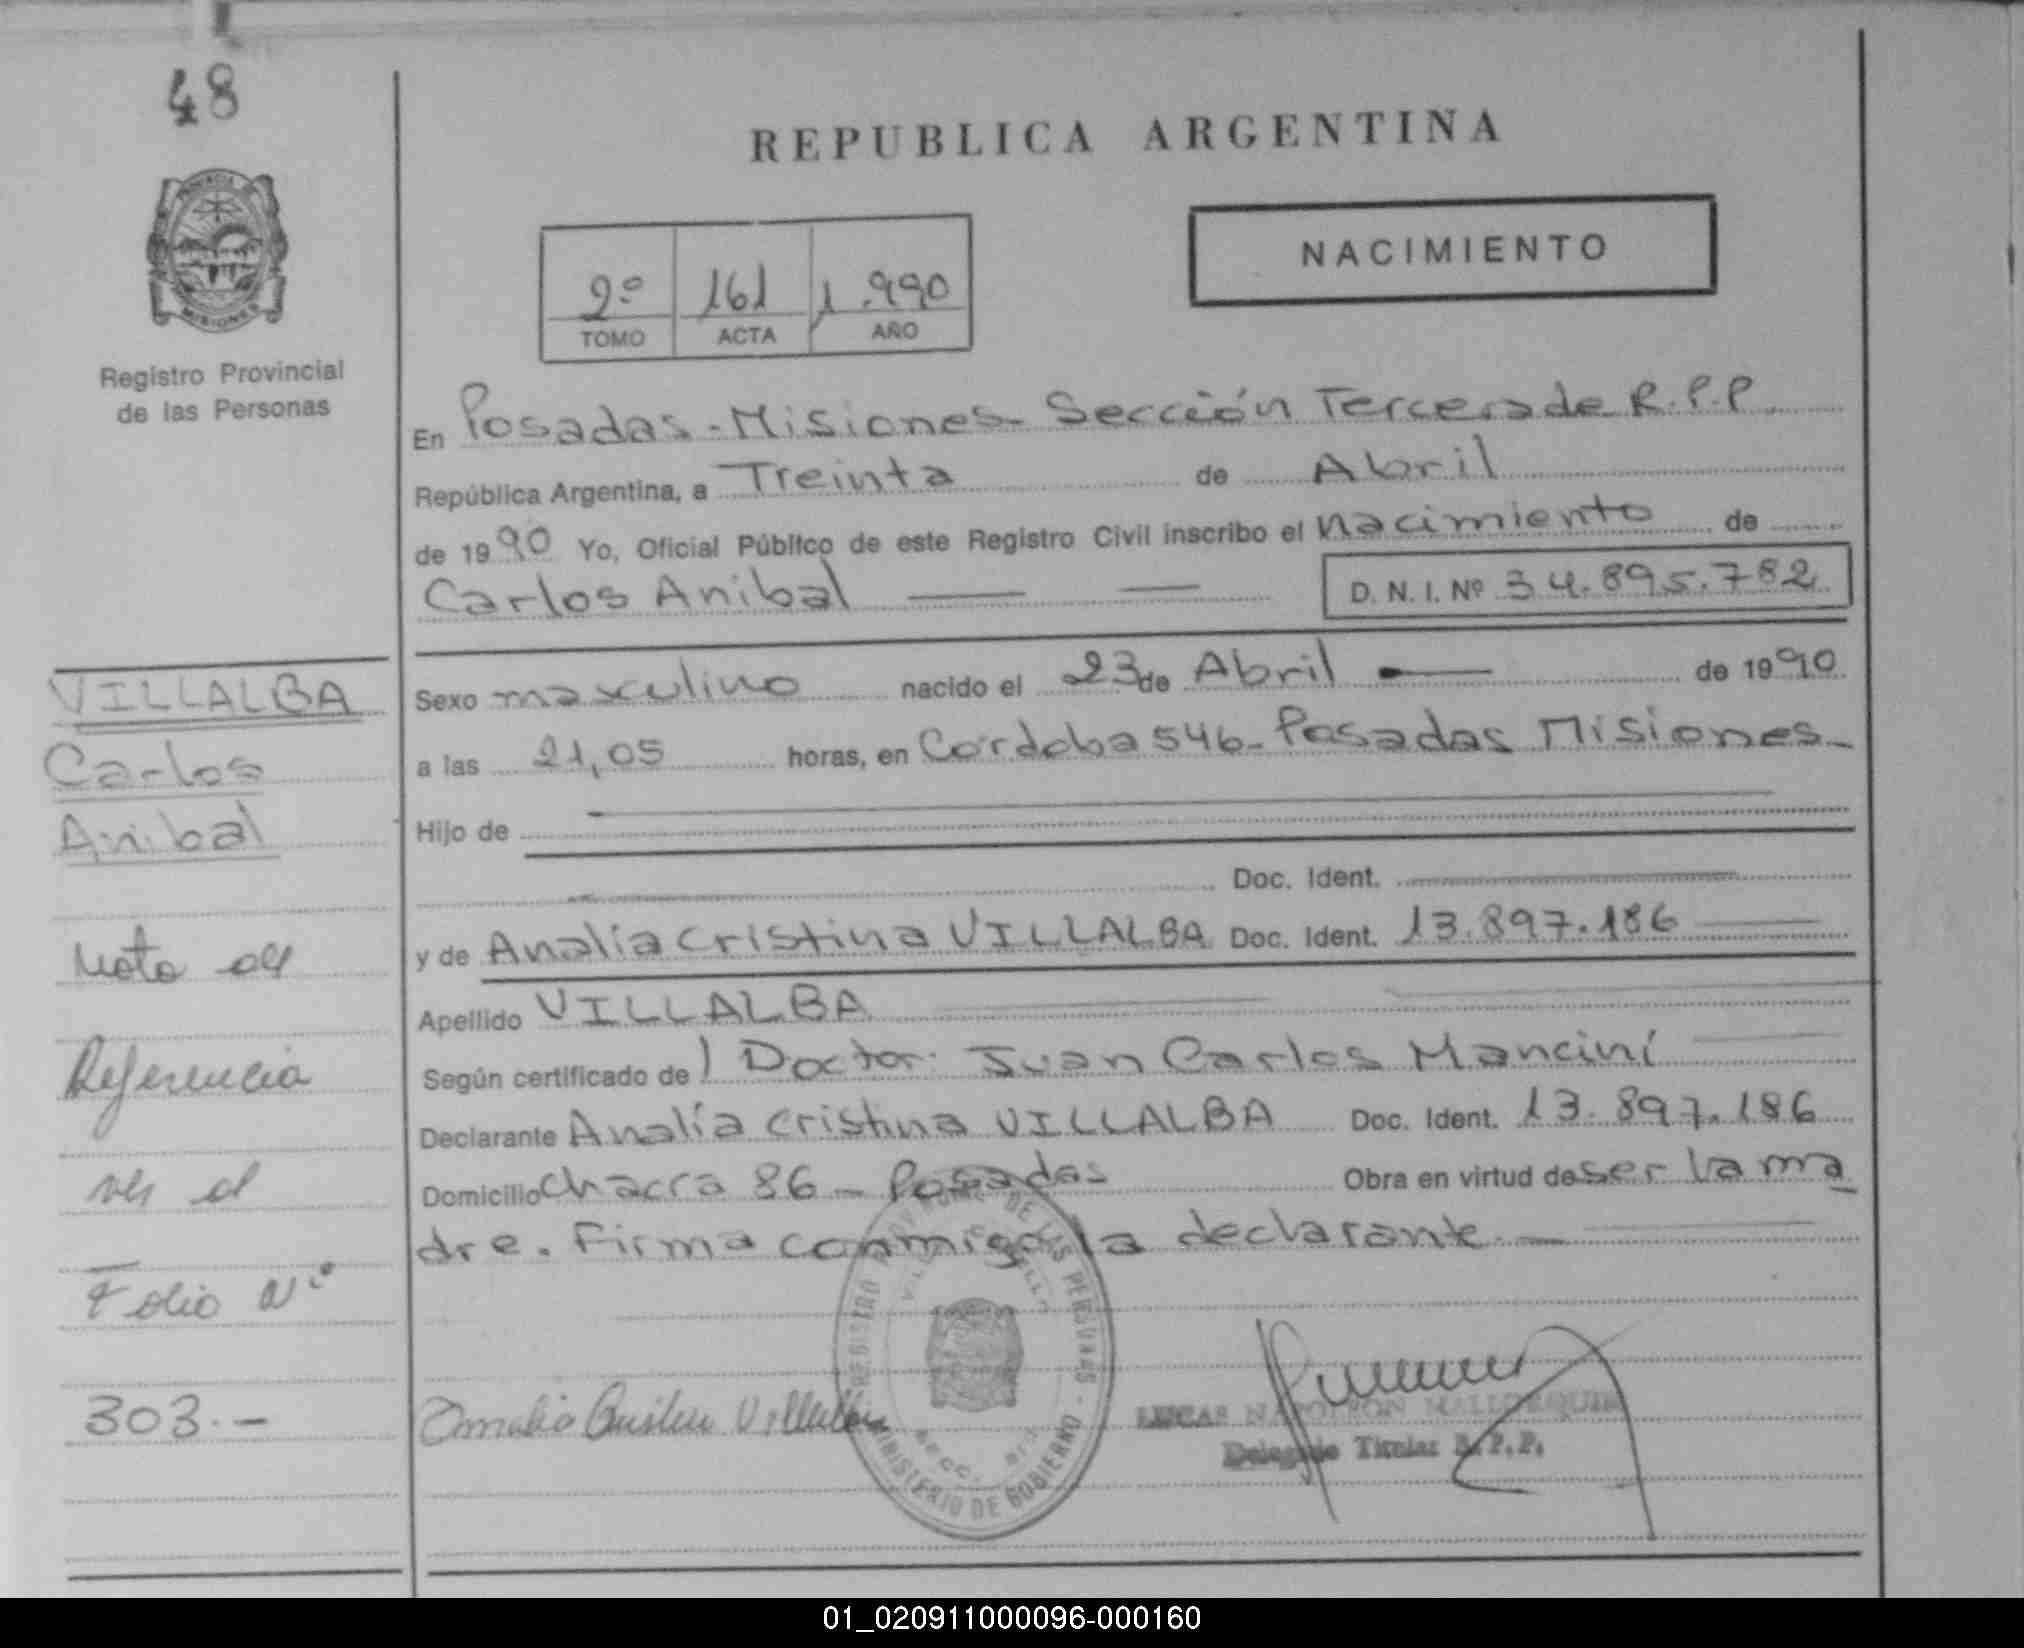 48
REPUBLICA ARGENTINA
NACIMIENTO
2º 161 1.990
TOMO ACTA AÑO
MISIONES
Registro Provincial
de las Personas
En Posadas - Misiones - Sección Tercera de R.P.P.
República Argentina, a Treinta de Abril
de 1990 Yo, Oficial Público de este Registro Civil inscribo el nacimiento de
Carlos Anibal — — D. N. I. Nº 34.895.782
VILLALBA
Carlos
Anibal
Sexo masculino nacido el 23 de Abril — de 1990
a las 21,05 horas, en Cordoba 546 - Posadas Misiones -
Hijo de
Doc. Ident.
y de Analía Cristina VILLALBA Doc. Ident. 13.897.186
Apellido VILLALBA
Según certificado del Doctor: Juan Carlos Mancini
Declarante Analía Cristina VILLALBA Doc. Ident. 13.897.186
Domicilio Chacra 86 - Posadas Obra en virtud de ser la ma
dre. Firma conmigo la declarante. —
Nota de
Referencia
ver el
Folio Nº
303.-
REGISTRO PROVINCIAL DE LAS PERSONAS - MINISTERIO DE GOBIERNO
Villalba
LUCAS NAPOLEON MALLORQUIN
Delegado Titular R.P.P.
01_020911000096-000160